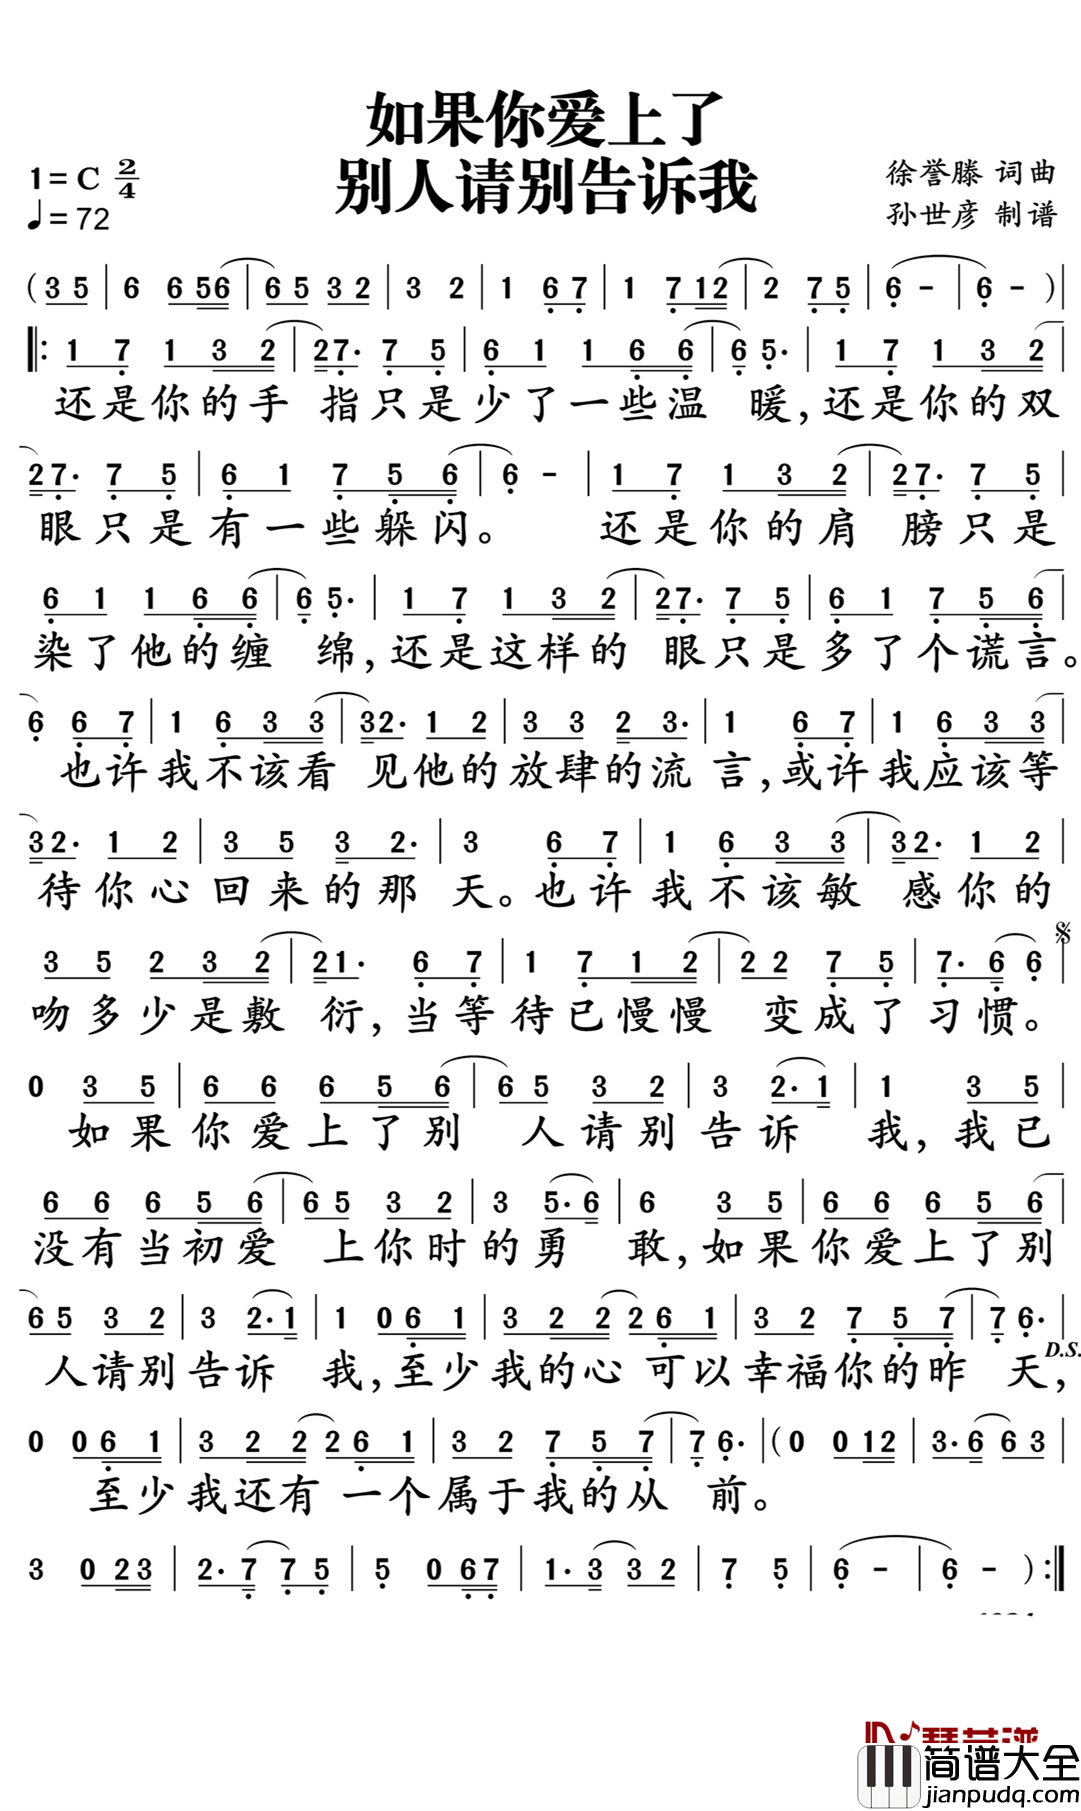 如果你爱上了
别人请别告诉我
1=C 2/4
♩=72
徐誉滕 词曲
孙世彦 制谱
( 3 5 | 6 6 5 6 | 6 5 3 2 | 3 2 | 1 6 7 | 1 7 1 2 | 2 7 5 | 6 - | 6 - ) |
|: 1 7 1 3 2 | 2 7· 7 5 | 6 1 1 6 6 | 6 5· | 1 7 1 3 2 |
还是你的手 指只是少了一些温 暖,还是你的双
2 7· 7 5 | 6 1 7 5 6 | 6 - | 1 7 1 3 2 | 2 7· 7 5 |
眼只是有一些躲闪。 还是你的肩 膀只是
6 1 1 6 6 | 6 5· | 1 7 1 3 2 | 2 7· 7 5 | 6 1 7 5 6 |
染了他的缠 绵,还是这样的 眼只是多了个谎言。
6 6 7 | 1 6 3 3 | 3 2· 1 2 | 3 3 2 3· | 1 6 7 | 1 6 3 3 |
也许我不该看 见他的放肆的流言,或许我应该等
3 2· 1 2 | 3 5 3 2· | 3 6 7 | 1 6 3 3 | 3 2· 1 2 |
待你心回来的那 天。也许我不该敏 感你的
3 5 2 3 2 | 2 1· 6 7 | 1 7 1 2 | 2 2 7 5 | 7· 6 6 |
吻多少是敷 衍,当等待已慢慢 变成了习惯。
0 3 5 | 6 6 6 5 6 | 6 5 3 2 | 3 2· 1 | 1 3 5 |
如果你爱上了别 人请别告诉 我,我已
6 6 6 5 6 | 6 5 3 2 | 3 5· 6 | 6 3 5 | 6 6 6 5 6 |
没有当初爱 上你时的勇 敢,如果你爱上了别
6 5 3 2 | 3 2· 1 | 1 0 6 1 | 3 2 2 2 6 1 | 3 2 7 5 7 | 7 6· |
人请别告诉 我,至少我的心 可以幸福你的昨 天,
D.S.
0 0 6 1 | 3 2 2 2 6 1 | 3 2 7 5 7 | 7 6· | ( 0 0 1 2 | 3· 6 6 3 |
至少我还有 一个属于我的从 前。
3 0 2 3 | 2· 7 7 5 | 5 0 6 7 | 1· 3 3 2 | 7 5 | 6 - | 6 - ) :|
简谱大全
jianpudq.com